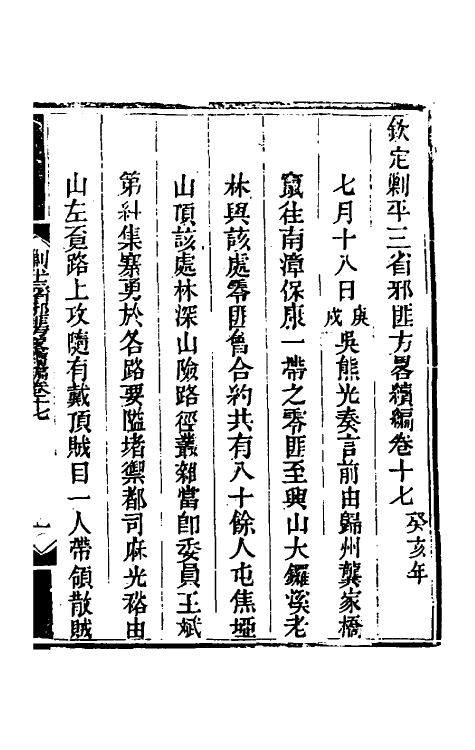 欽定剿平三省邪匪方畧續編卷十七癸亥年
七月十八日庚戌吳熊光奏言前由歸州龔家橋
竄往南漳保康一帶之零匪至興山大鑼溪老
林與該處零匪魯合約共有八十餘人屯焦埡
山頂該處林深山險路徑叢雜當即委員王斌
第糾集寨勇於各路要隘堵禦都司麻光裕由
山左覔路上攻隨有戴頂賊目一人帶領散賊
剿平三省邪匪方畧續編卷十七
一